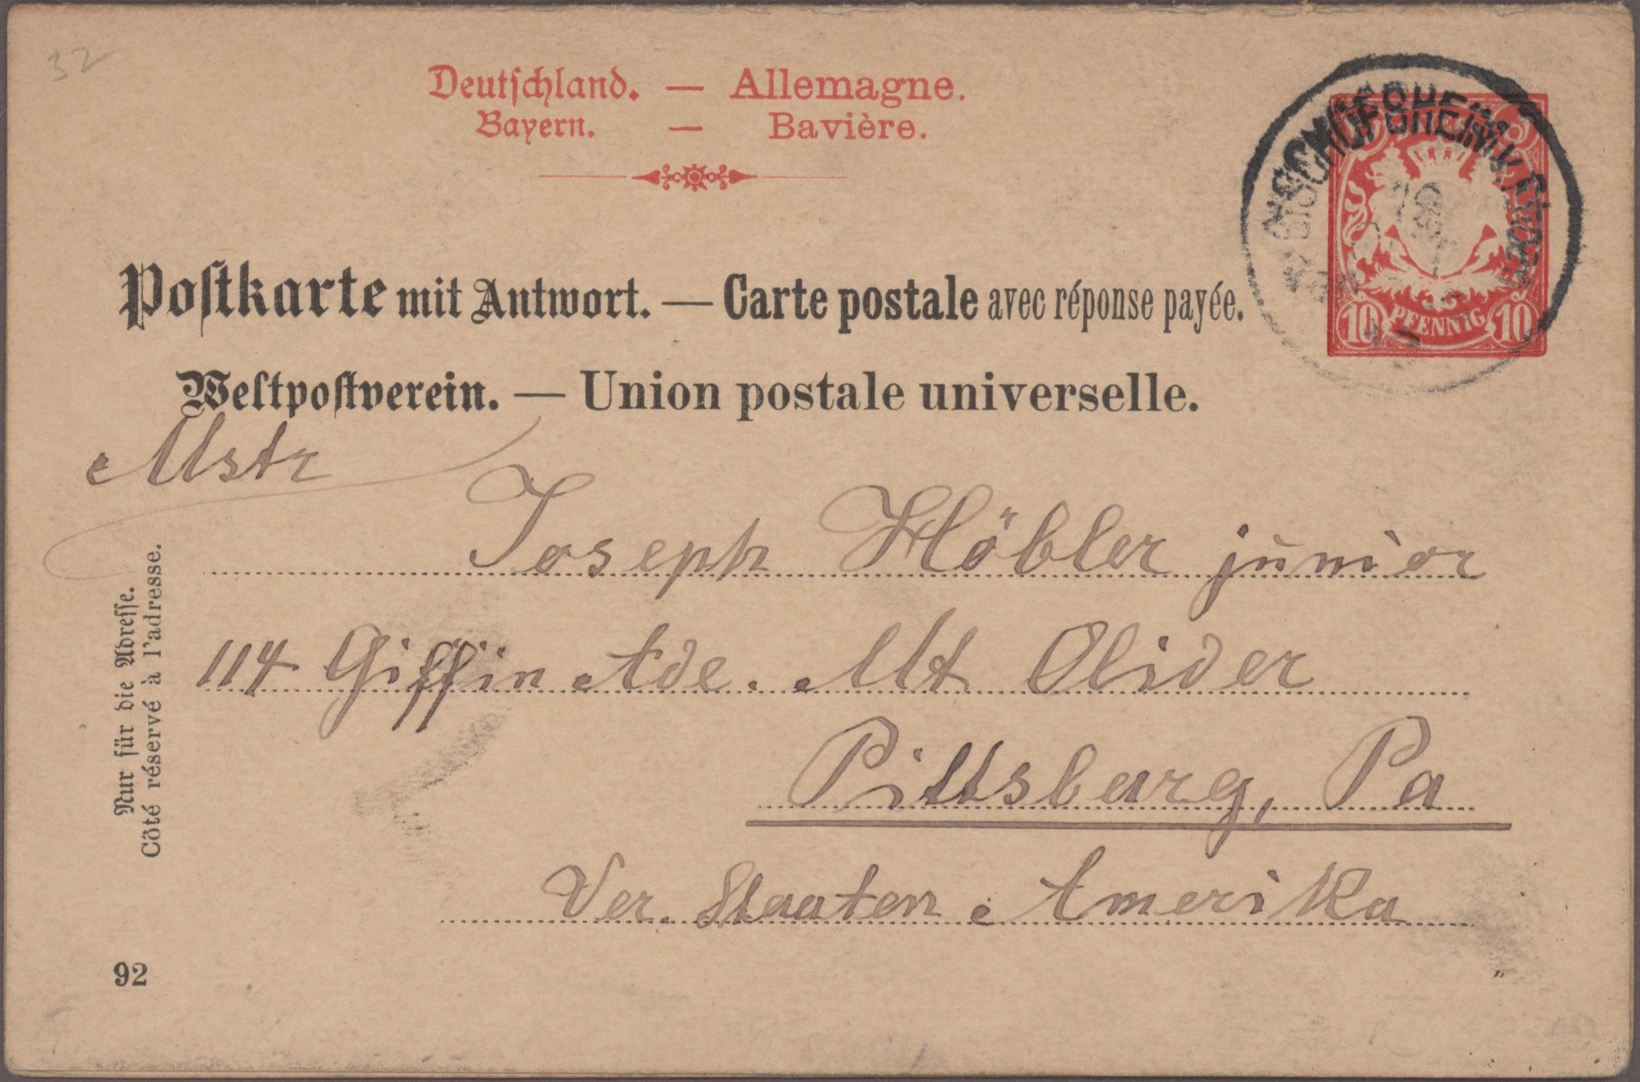 32
Deutschland. — Allemagne.
Bayern. — Bavière.
BISCHOFSHEIM
10 PFENNIG 10
Postkarte mit Antwort. — Carte postale avec réponse payée.
Weltpostverein. — Union postale universelle.
Mstr
Joseph Höbler junior
114 Giffin Ade. Mt Olider
Pittsburg, Pa
Ver. Staaten Amerika
Nur für die Adresse.
Côté réservé à l'adresse.
92